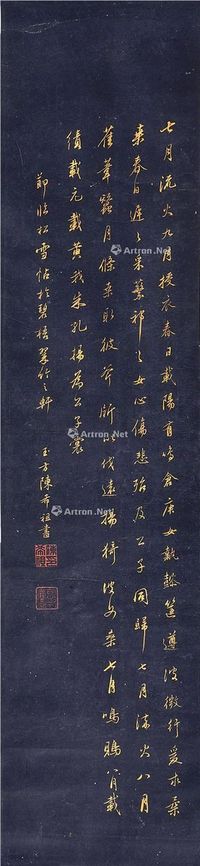 七月流火九月授衣春日載陽有鳴倉庚女執懿筐遵彼微行爰求柔
桑春日遲遲采蘩祁祁女心傷悲殆及公子同歸七月流火八月
萑葦蠶月條桑取彼斧斨以伐遠揚猗彼女桑七月鳴鵙八月載
績載玄載黃我朱孔揚為公子裳
節臨松雪帖於碧梧翠竹之軒
玉方陳希祖書
Artron.Net
Artron.Net
Artron.Net
Artron.Net